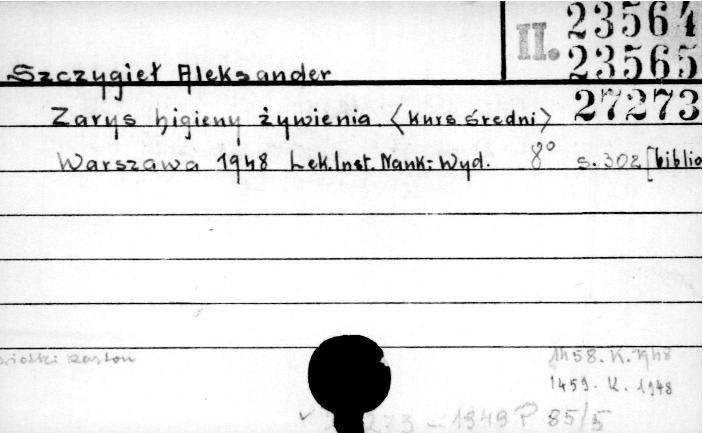 II. 23564
23565
27273
Szczygieł Aleksander
Zarys higieny żywienia. <Kurs średni>
Warszawa 1948 Lek. Inst. Nauk.-Wyd. 8° s. 302 [biblio
1458. K. 1948
1459. K. 1948
1949 P 85/5